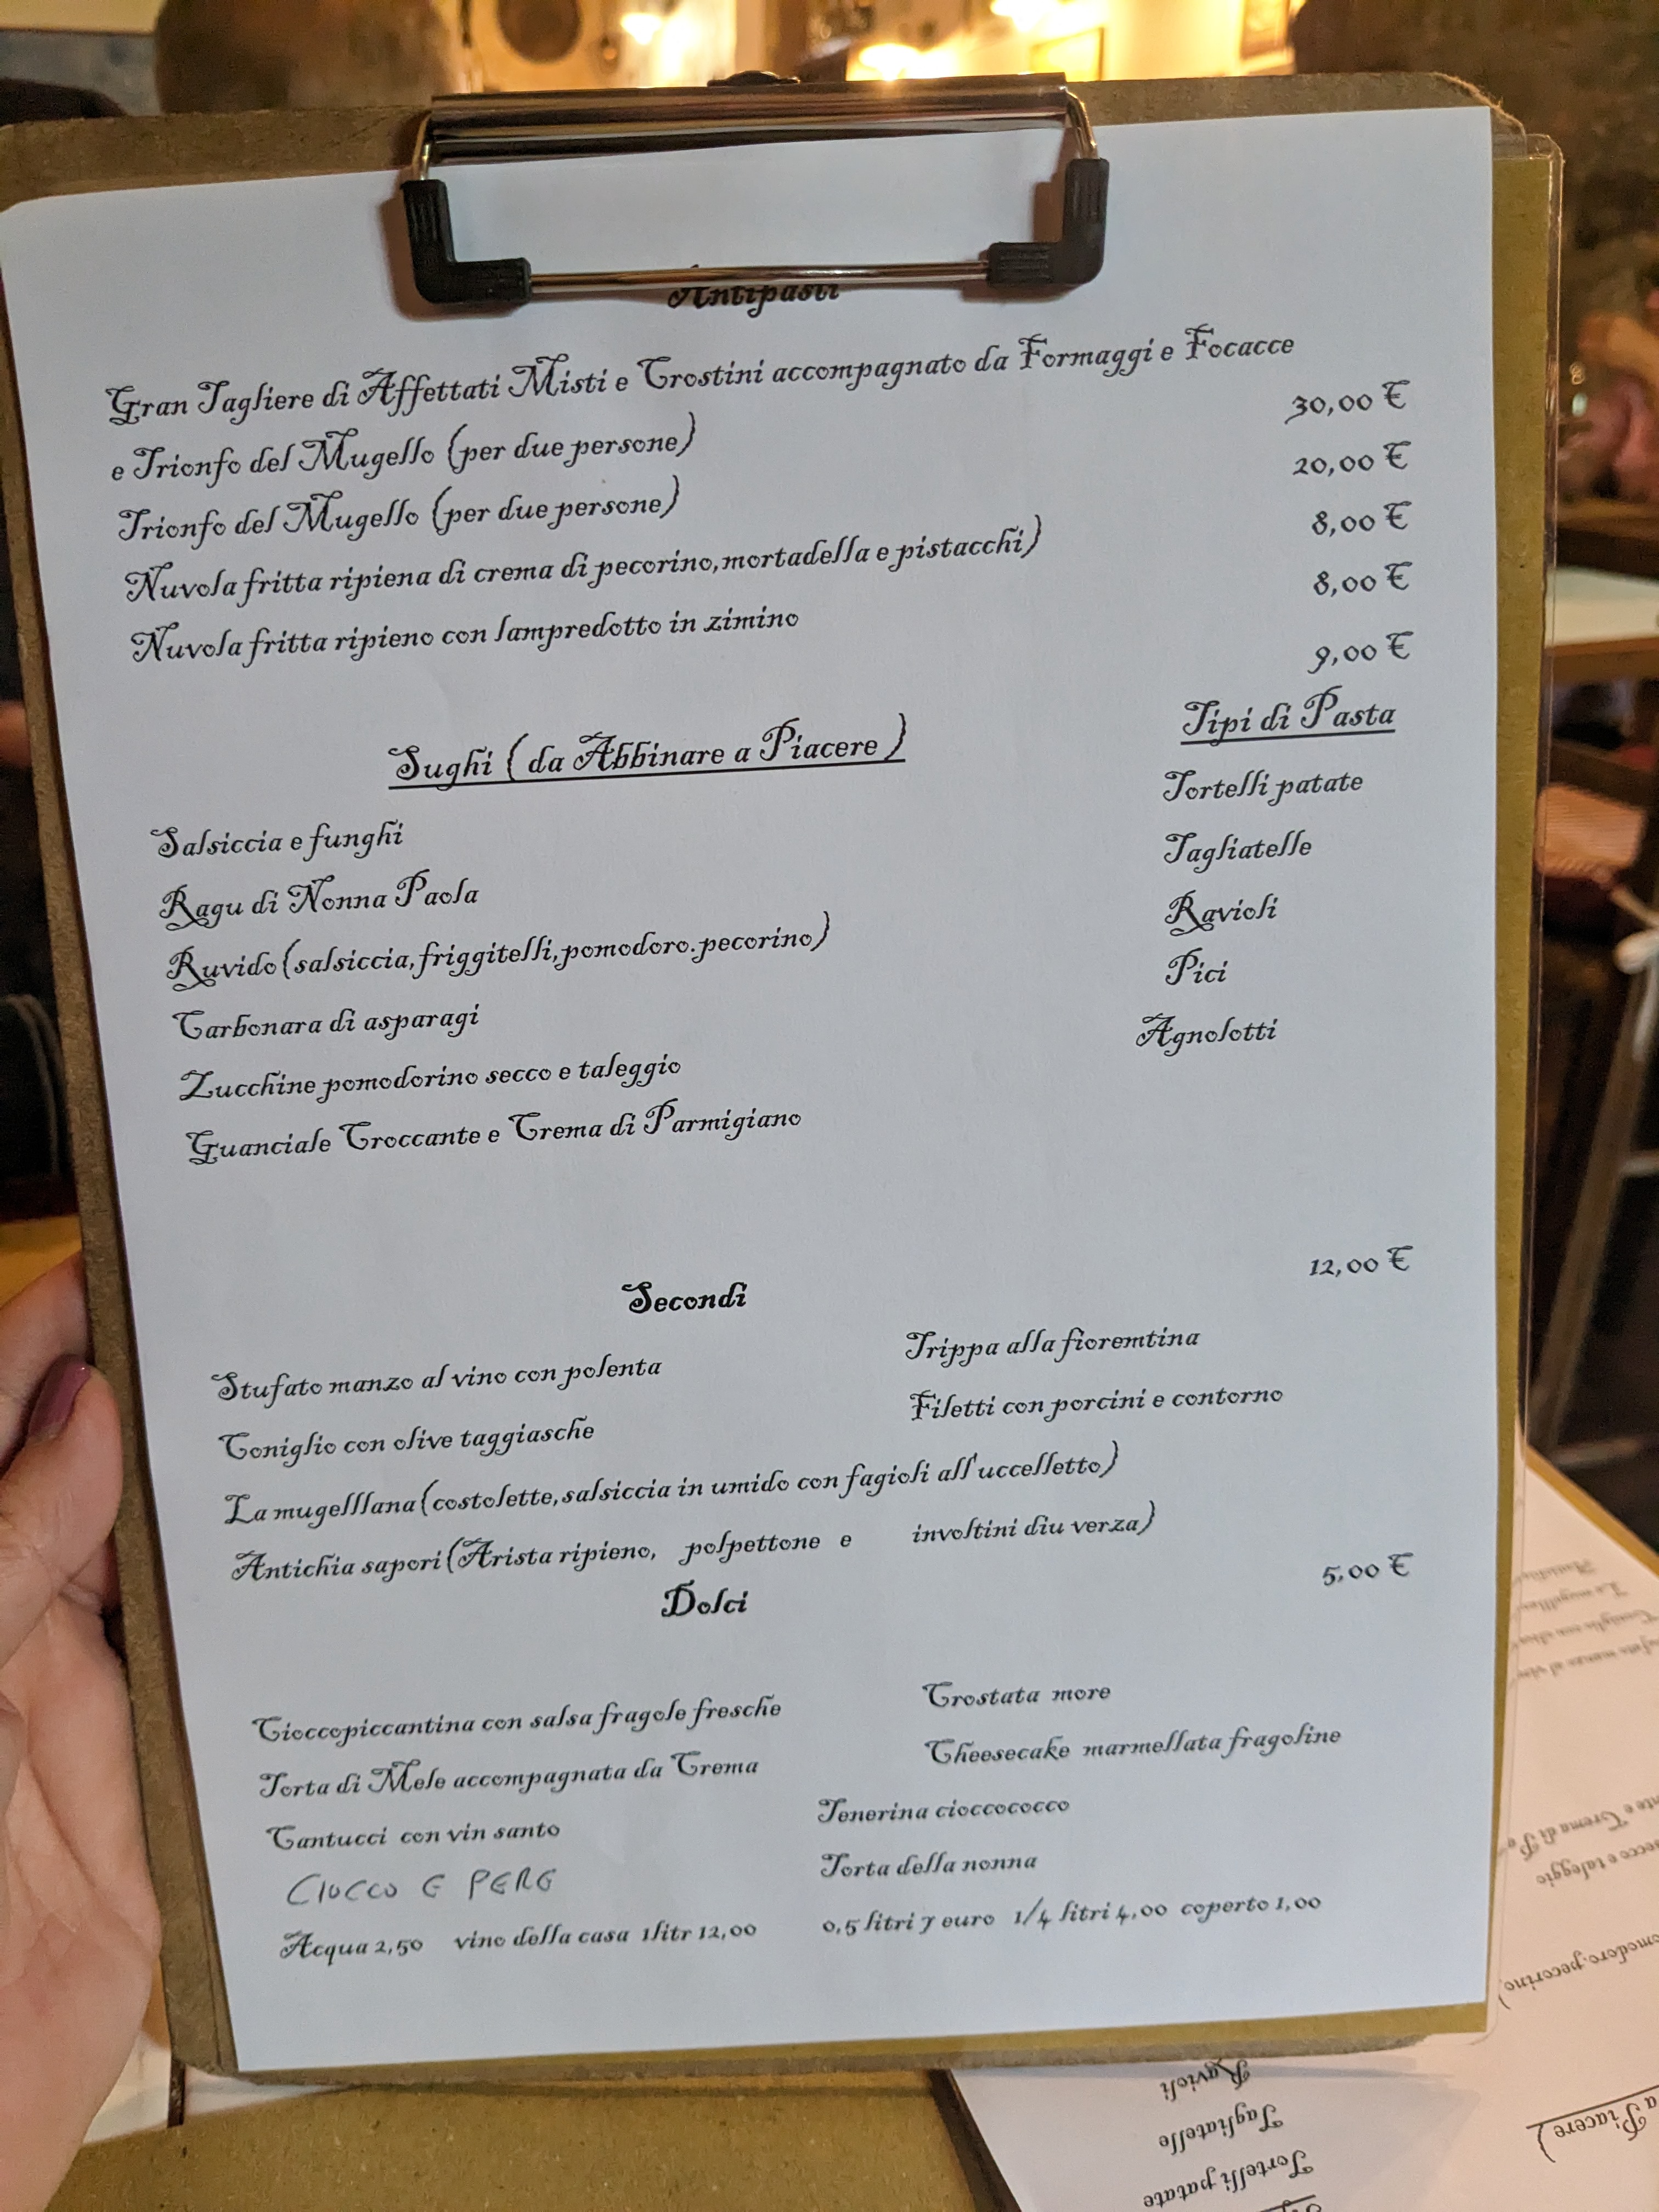 Antipasti
Gran Tagliere di Affettati Misti e Crostini accompagnato da Formaggi e Focacce
e Trionfo del Mugello (per due persone) 30,00 €
Trionfo del Mugello (per due persone) 20,00 €
Nuvola fritta ripiena di crema di pecorino,mortadella e pistacchi) 8,00 €
Nuvola fritta ripieno con lampredotto in zimino 8,00 €
9,00 €
Sughi ( da Abbinare a Piacere ) Tipi di Pasta
Salsiccia e funghi Tortelli patate
Ragu di Nonna Paola Tagliatelle
Ruvido (salsiccia,friggitelli,pomodoro.pecorino) Ravioli
Carbonara di asparagi Pici
Zucchine pomodorino secco e taleggio Agnolotti
Guanciale Croccante e Crema di Parmigiano
Secondi 12,00 €
Stufato manzo al vino con polenta Trippa alla fioremtina
Coniglio con olive taggiasche Filetti con porcini e contorno
La mugelllana (costolette,salsiccia in umido con fagioli all'uccelletto)
Antichia sapori (Arista ripieno, polpettone e involtini diu verza)
Dolci 5,00 €
Cioccopiccantina con salsa fragole fresche Crostata more
Torta di Mele accompagnata da Crema Cheesecake marmellata fragoline
Cantucci con vin santo Tenerina cioccococco
CIOCCO E PERE Torta della nonna
Acqua 2,50 vino della casa 1litr 12,00 0,5 litri 7 euro 1/4 litri 4,00 coperto 1,00
Ravioli
Tagliatelle
Tortelli patate
a Piacere )